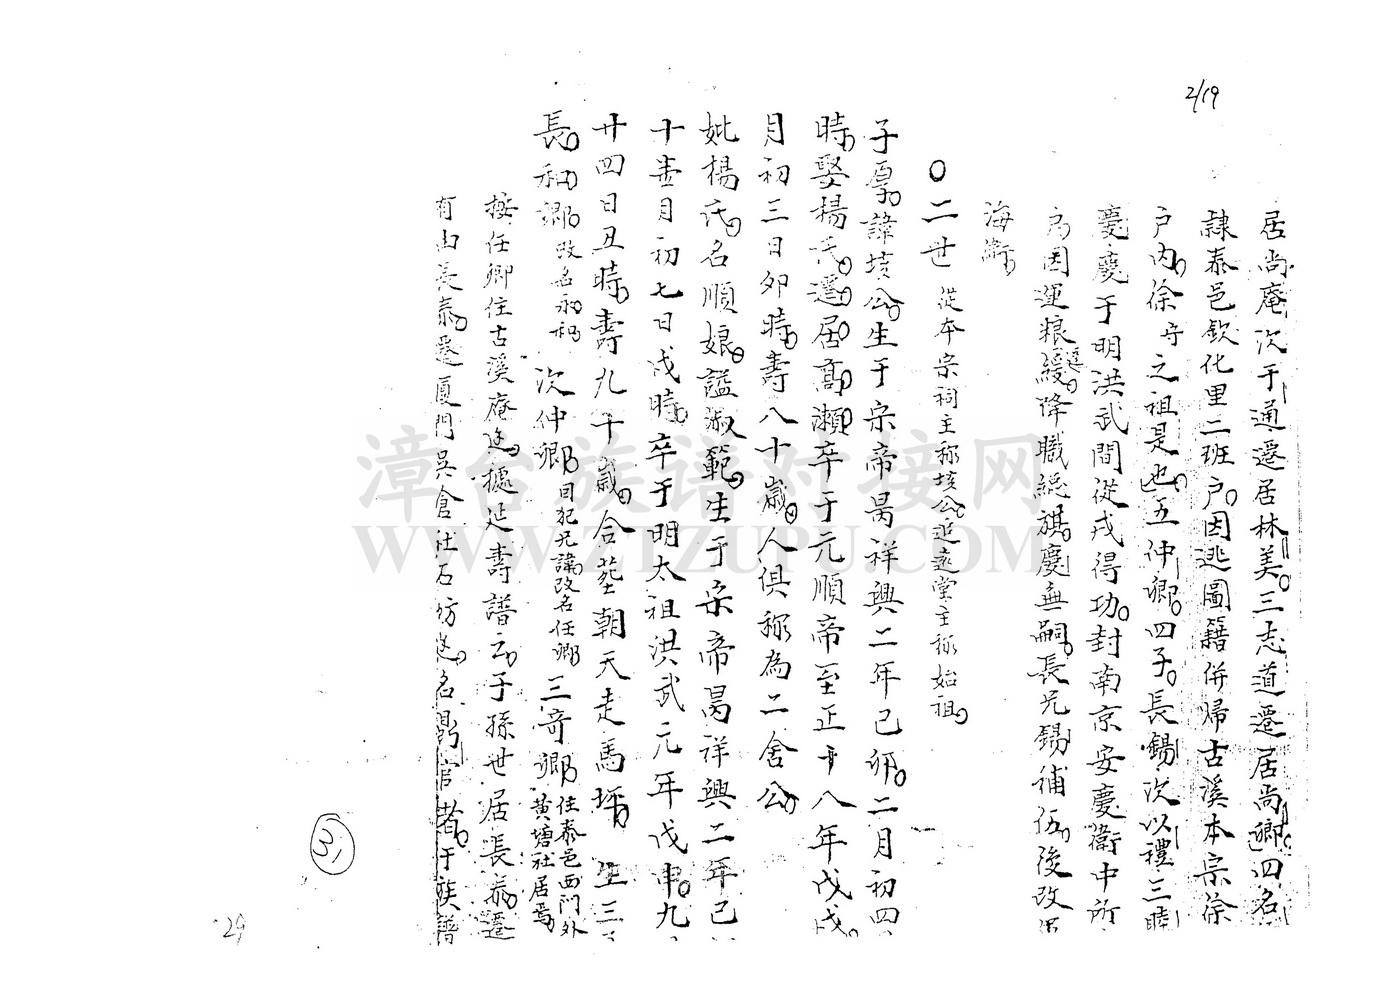 2/19
居尚庵次于通遷居林美三志道遷居尚卿四名
隸泰邑欽化里二班户因逃圖籍併歸古溪本宗徐
户内徐守之祖是也五仲卿四子長錫次以禮三睦
慶慶于明洪武間從戎得功封南京安慶衛中所
因運粮緩降職總旗慶無嗣長兄錫補伍後改
海衛
○二世 從本宗祠主称垓公追遠堂主称始祖
子厚諱垓公生于宋帝昺祥興二年己卯二月初四
時娶楊氏遷居高瀨卒于元順帝至正十八年戊戌
月初三日卯時壽八十歲人俱称為二舍公
妣楊氏名順娘諡淑範生于宋帝昺祥興二年己
十壹月初七日戌時卒于明太祖洪武元年戊申九
廿四日丑時壽九十歲合塟朝天走馬坪 生三
長和卿改名永和 次仲卿因犯兄諱改名任卿 三奇卿住泰邑西門外黄塘社居焉
按任卿住古溪庵边據延壽譜云子孫世居長泰遷
有由長泰遷厦門吳倉社石坊边名 官者于族譜
31
29
漳台族谱对接网
WWW.ZTZUPU.COM